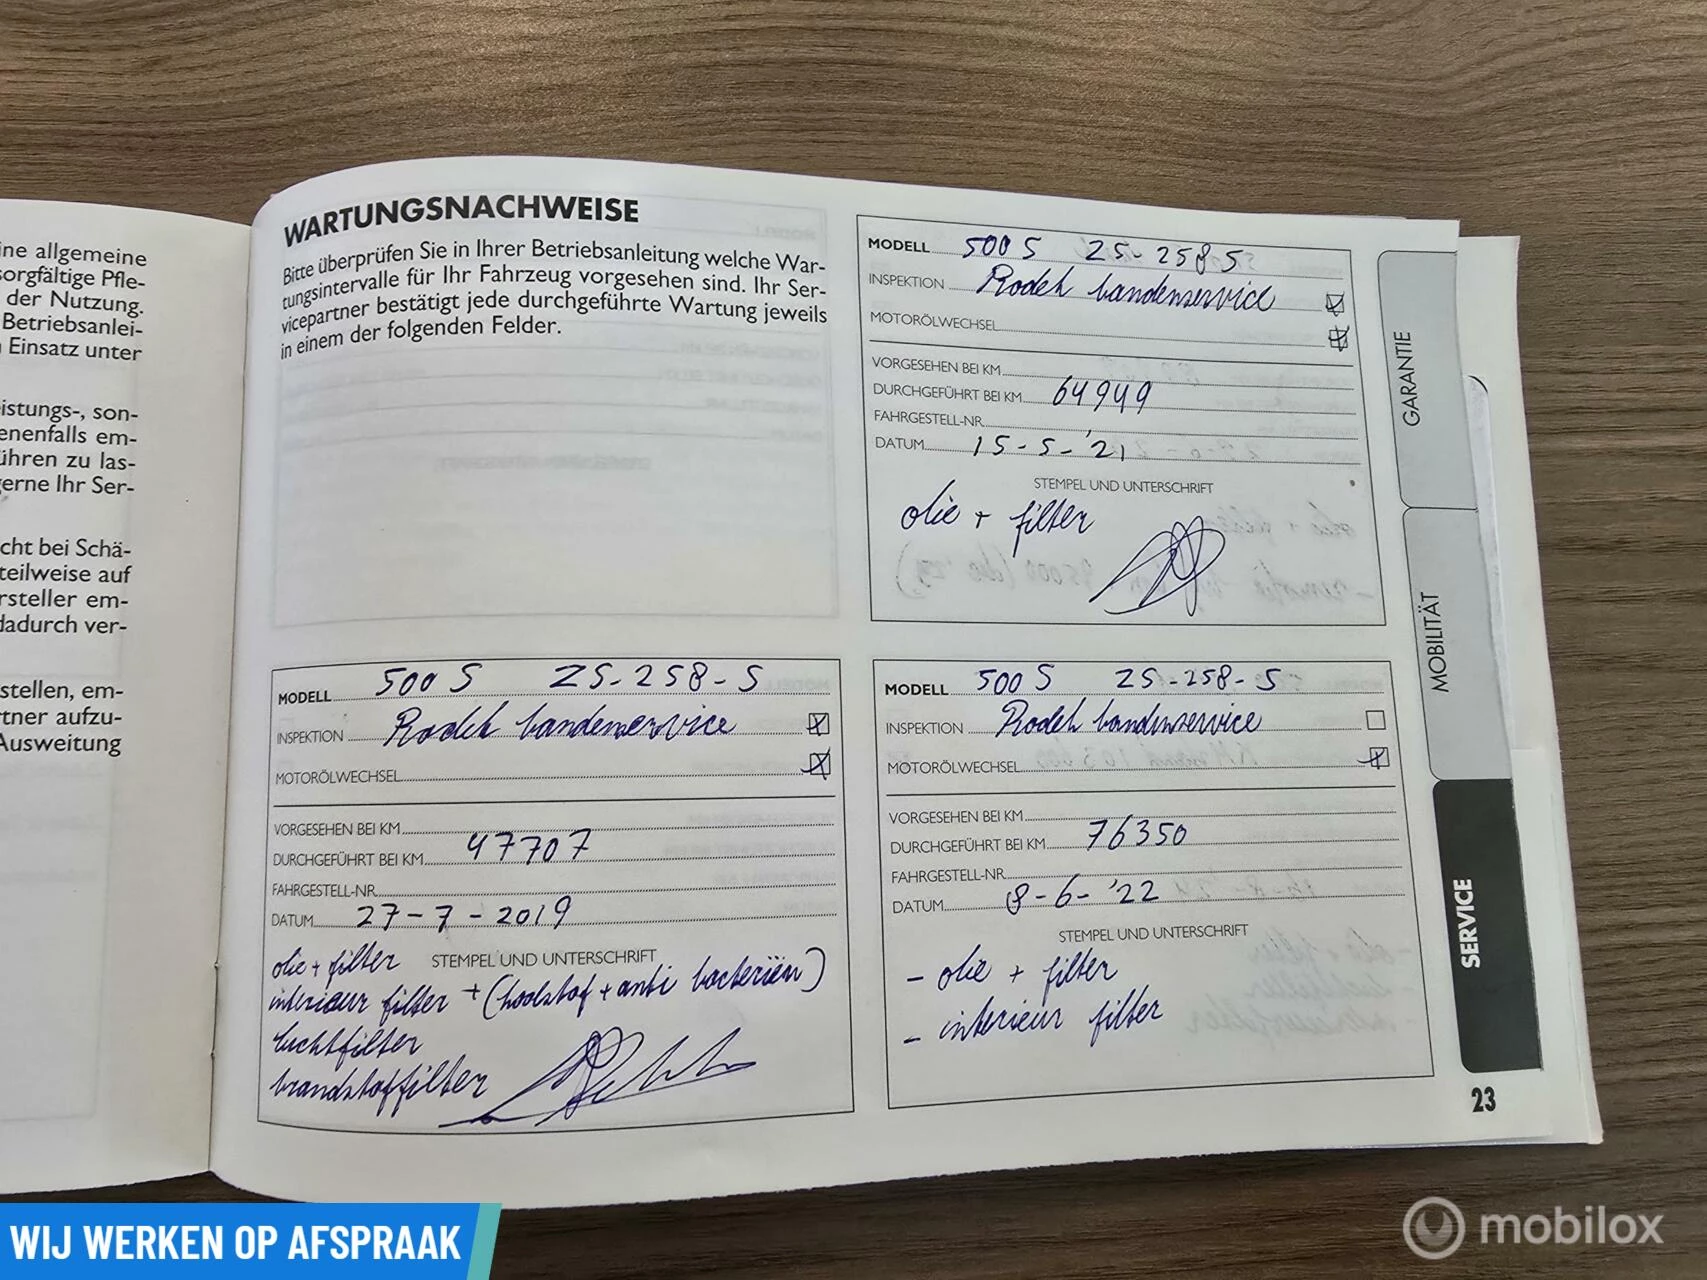 ine allgemeine
sorgfältige Pfle-
der Nutzung.
Betriebsanlei-
Einsatz unter
eistungs-, son-
enenfalls em-
ühren zu las-
gerne Ihr Ser-
cht bei Schä-
teilweise auf
rsteller em-
dadurch ver-
stellen, em-
rtner aufzu-
Ausweitung
WARTUNGSNACHWEISE
Bitte überprüfen Sie in Ihrer Betriebsanleitung welche War-
tungsintervalle für Ihr Fahrzeug vorgesehen sind. Ihr Ser-
vicepartner bestätigt jede durchgeführte Wartung jeweils
in einem der folgenden Felder.
MODELL 500 S ZS-258-S
INSPEKTION Rodek bandenservice
MOTORÖLWECHSEL
VORGESEHEN BEI KM
DURCHGEFÜHRT BEI KM 64949
FAHRGESTELL-NR.
DATUM 15-5-'21
STEMPEL UND UNTERSCHRIFT
olie + filter
MODELL 500 S ZS-258-S
INSPEKTION Rodek bandenservice
MOTORÖLWECHSEL
VORGESEHEN BEI KM
DURCHGEFÜHRT BEI KM 47707
FAHRGESTELL-NR.
DATUM 27-7-2019
STEMPEL UND UNTERSCHRIFT
olie + filter
interieur filter + (koolstof + anti bacteriën)
luchtfilter
brandstoffilter
MODELL 500 S ZS-258-S
INSPEKTION Rodek bandenservice
MOTORÖLWECHSEL
VORGESEHEN BEI KM
DURCHGEFÜHRT BEI KM 76350
FAHRGESTELL-NR.
DATUM 8-6-'22
STEMPEL UND UNTERSCHRIFT
- olie + filter
- interieur filter
GARANTIE
MOBILITÄT
SERVICE
23
WIJ WERKEN OP AFSPRAAK
mobilox